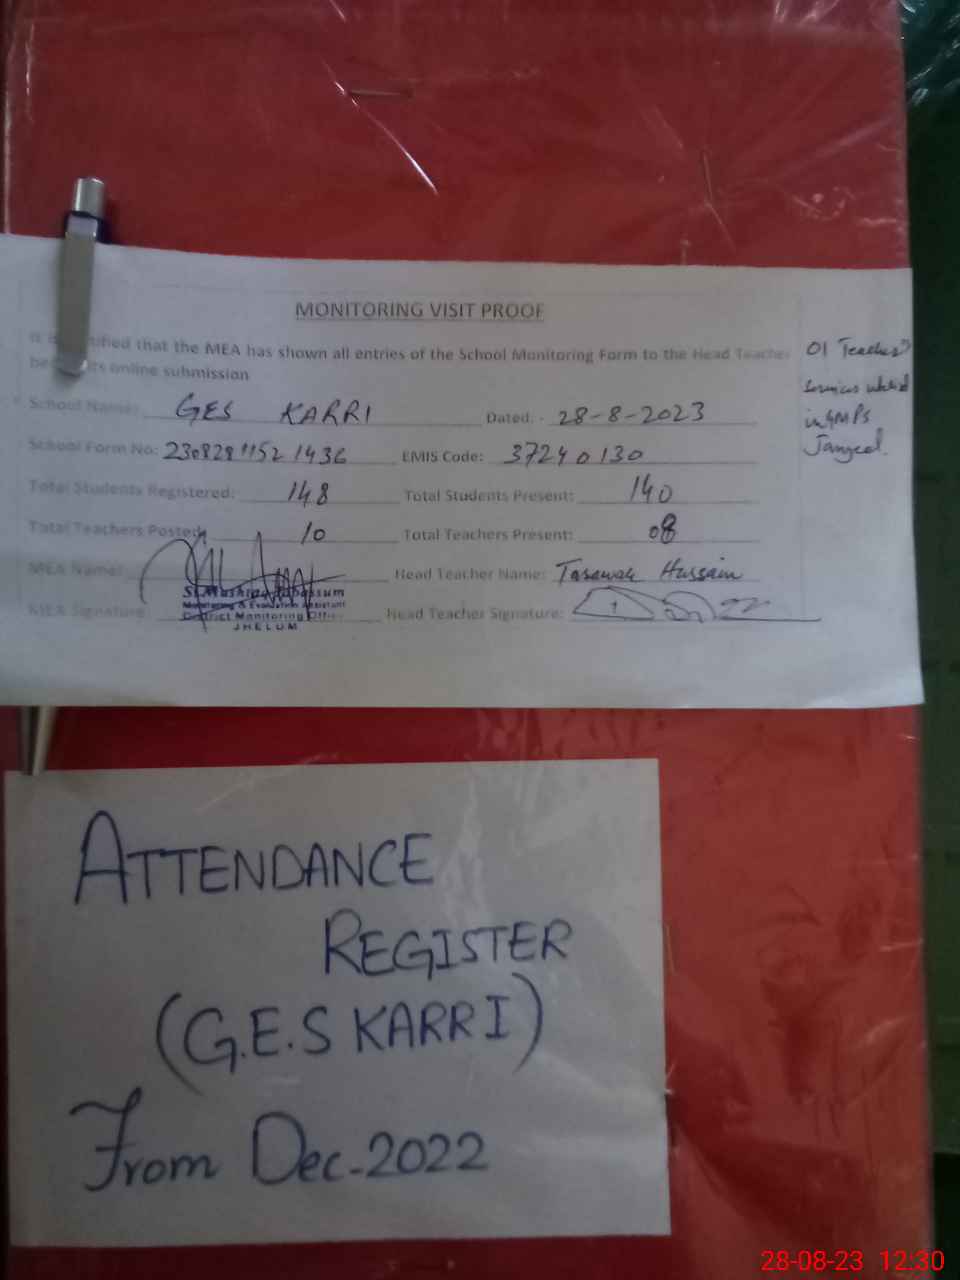 MONITORING VISIT PROOF
that the MEA has shown all entries of the School Monitoring Form to the Head Teacher
online submission
School Name: GES KARRI Dated: - 28-8-2023
School Form No: EMIS Code: 37240130
Total Students Registered: 148 Total Students Present: 140
Total Teachers Posted: 10 Total Teachers Present: 08
MEA Name: Head Teacher Name: Hussain
MEA Signature: Head Teacher Signature:
Monitoring & Evaluation Assistant
District Monitoring Office
JHELUM
01 Teacher
in GMPS
ATTENDANCE
REGISTER
(G.E.S KARRI)
From Dec-2022
28-08-23 12:30